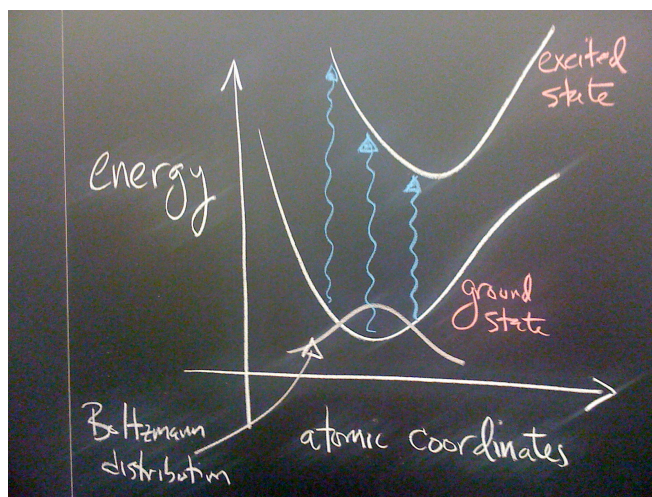 excited
state
energy
ground
state
Boltzmann
distribution
atomic coordinates